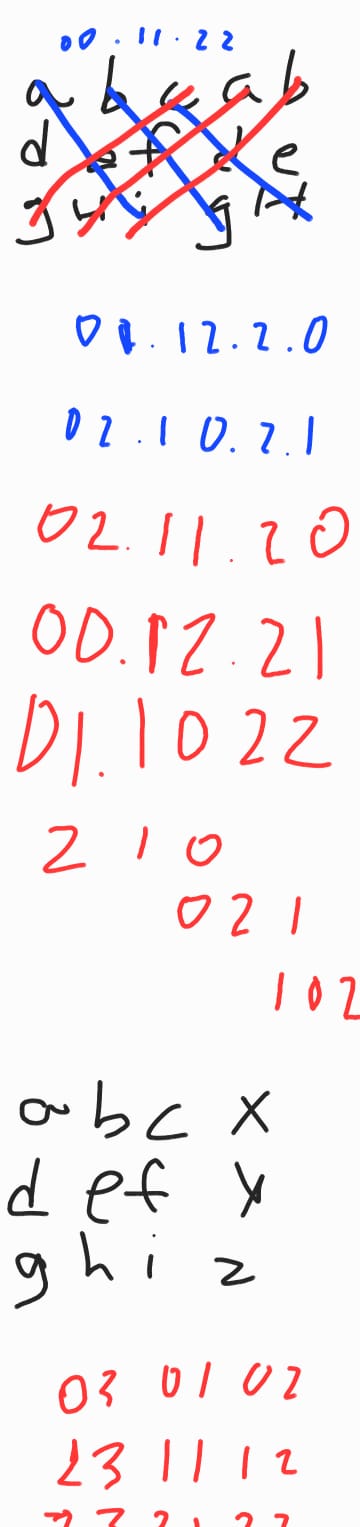 00.11.22
a b c a b
d e f d e
g h i g h
01.12.2.0
02.10.2.1
02.11.20
00.12.21
01.1022
2 1 0
021
102
a b c x
d e f y
g h i z
03 01 02
13 11 12
23 21 22